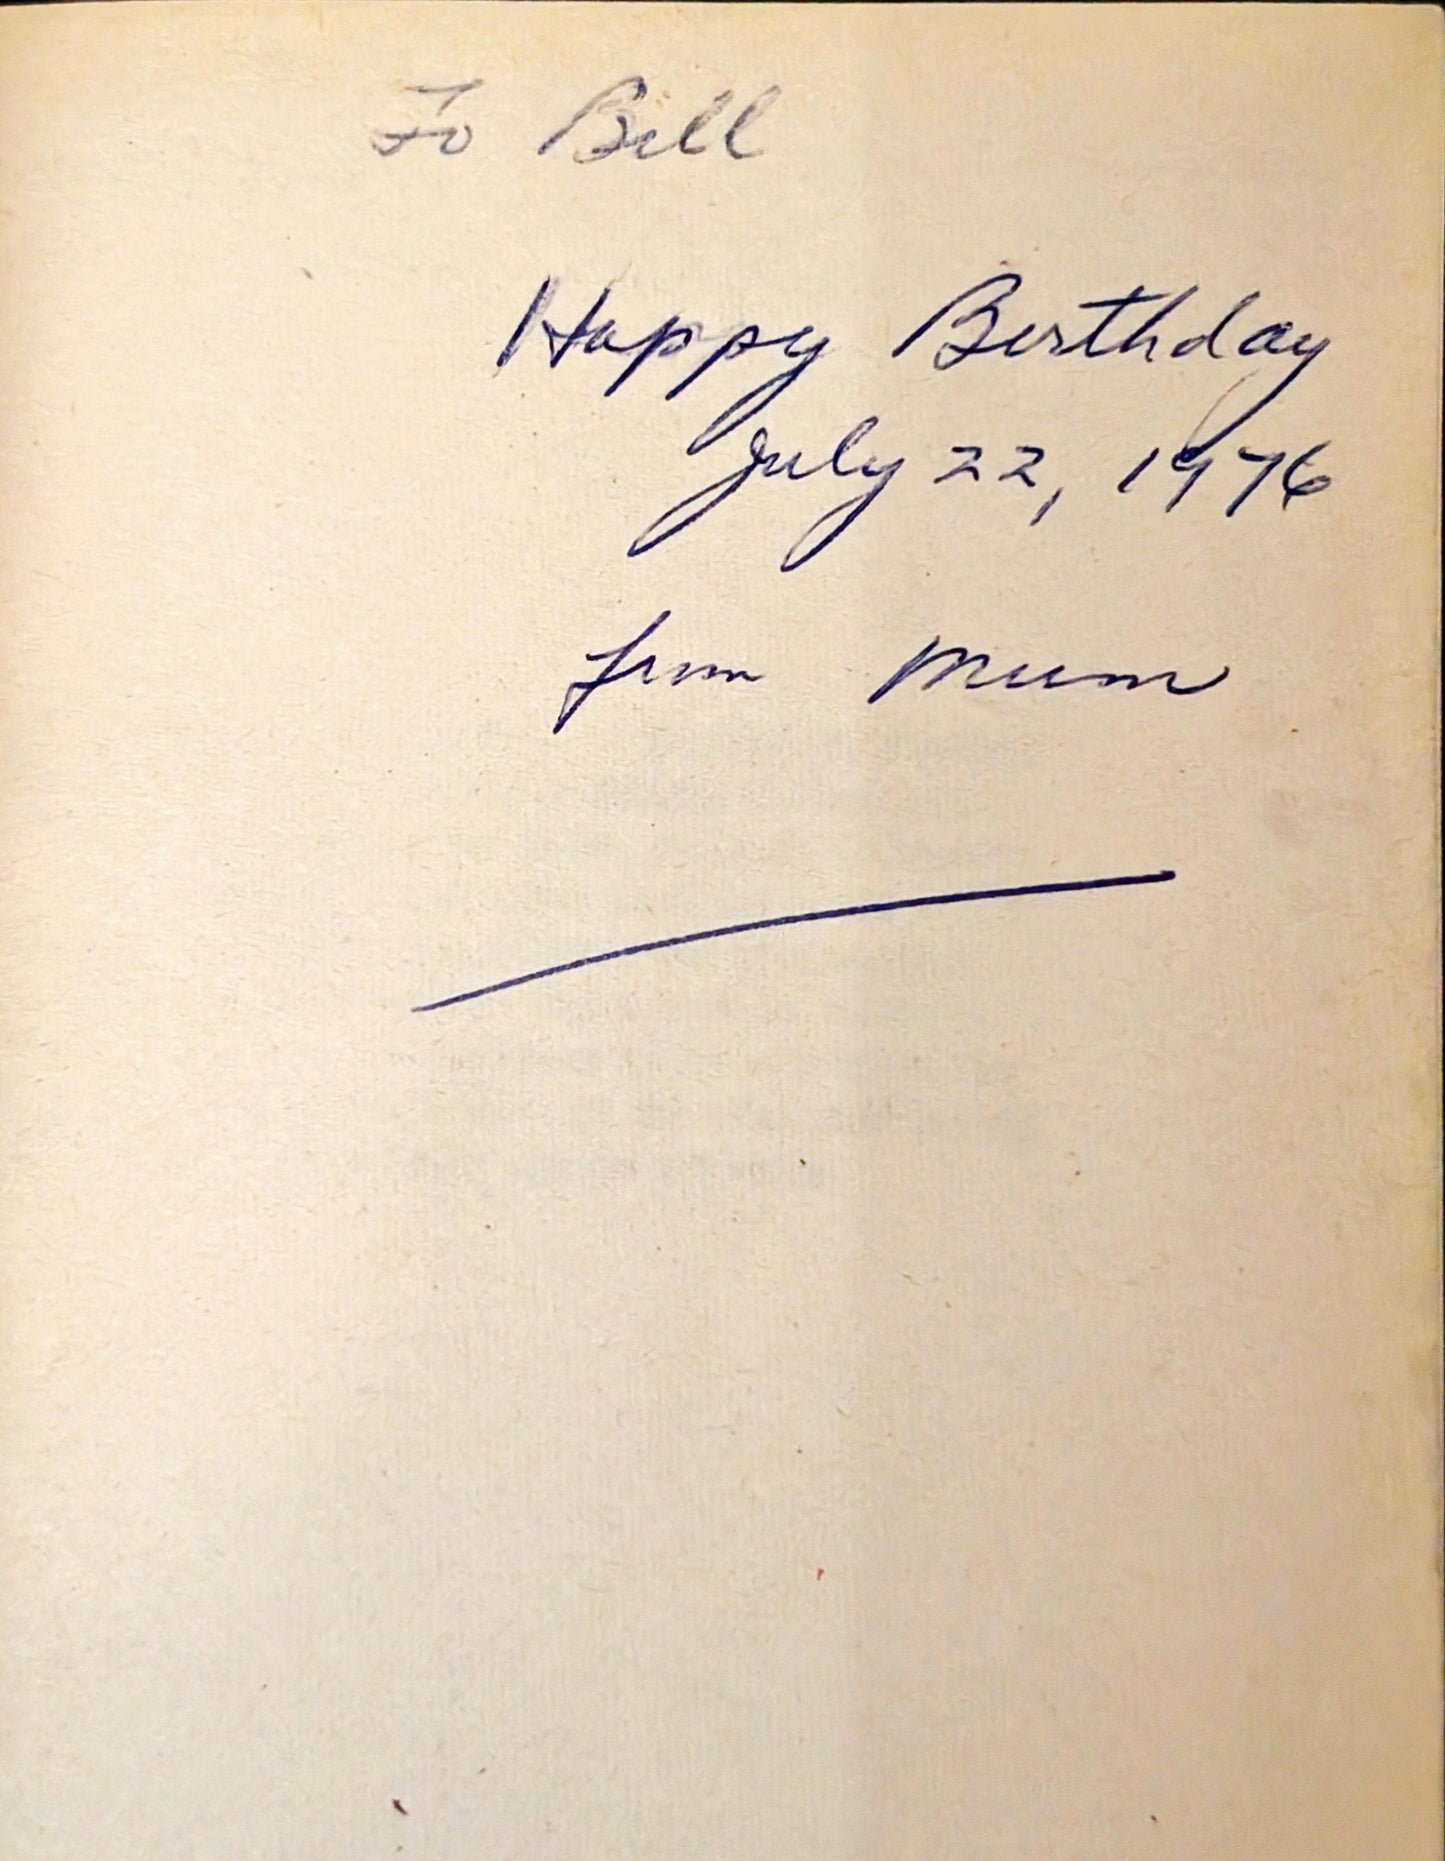 To Bill
Happy Birthday
July 22, 1976
from Mum